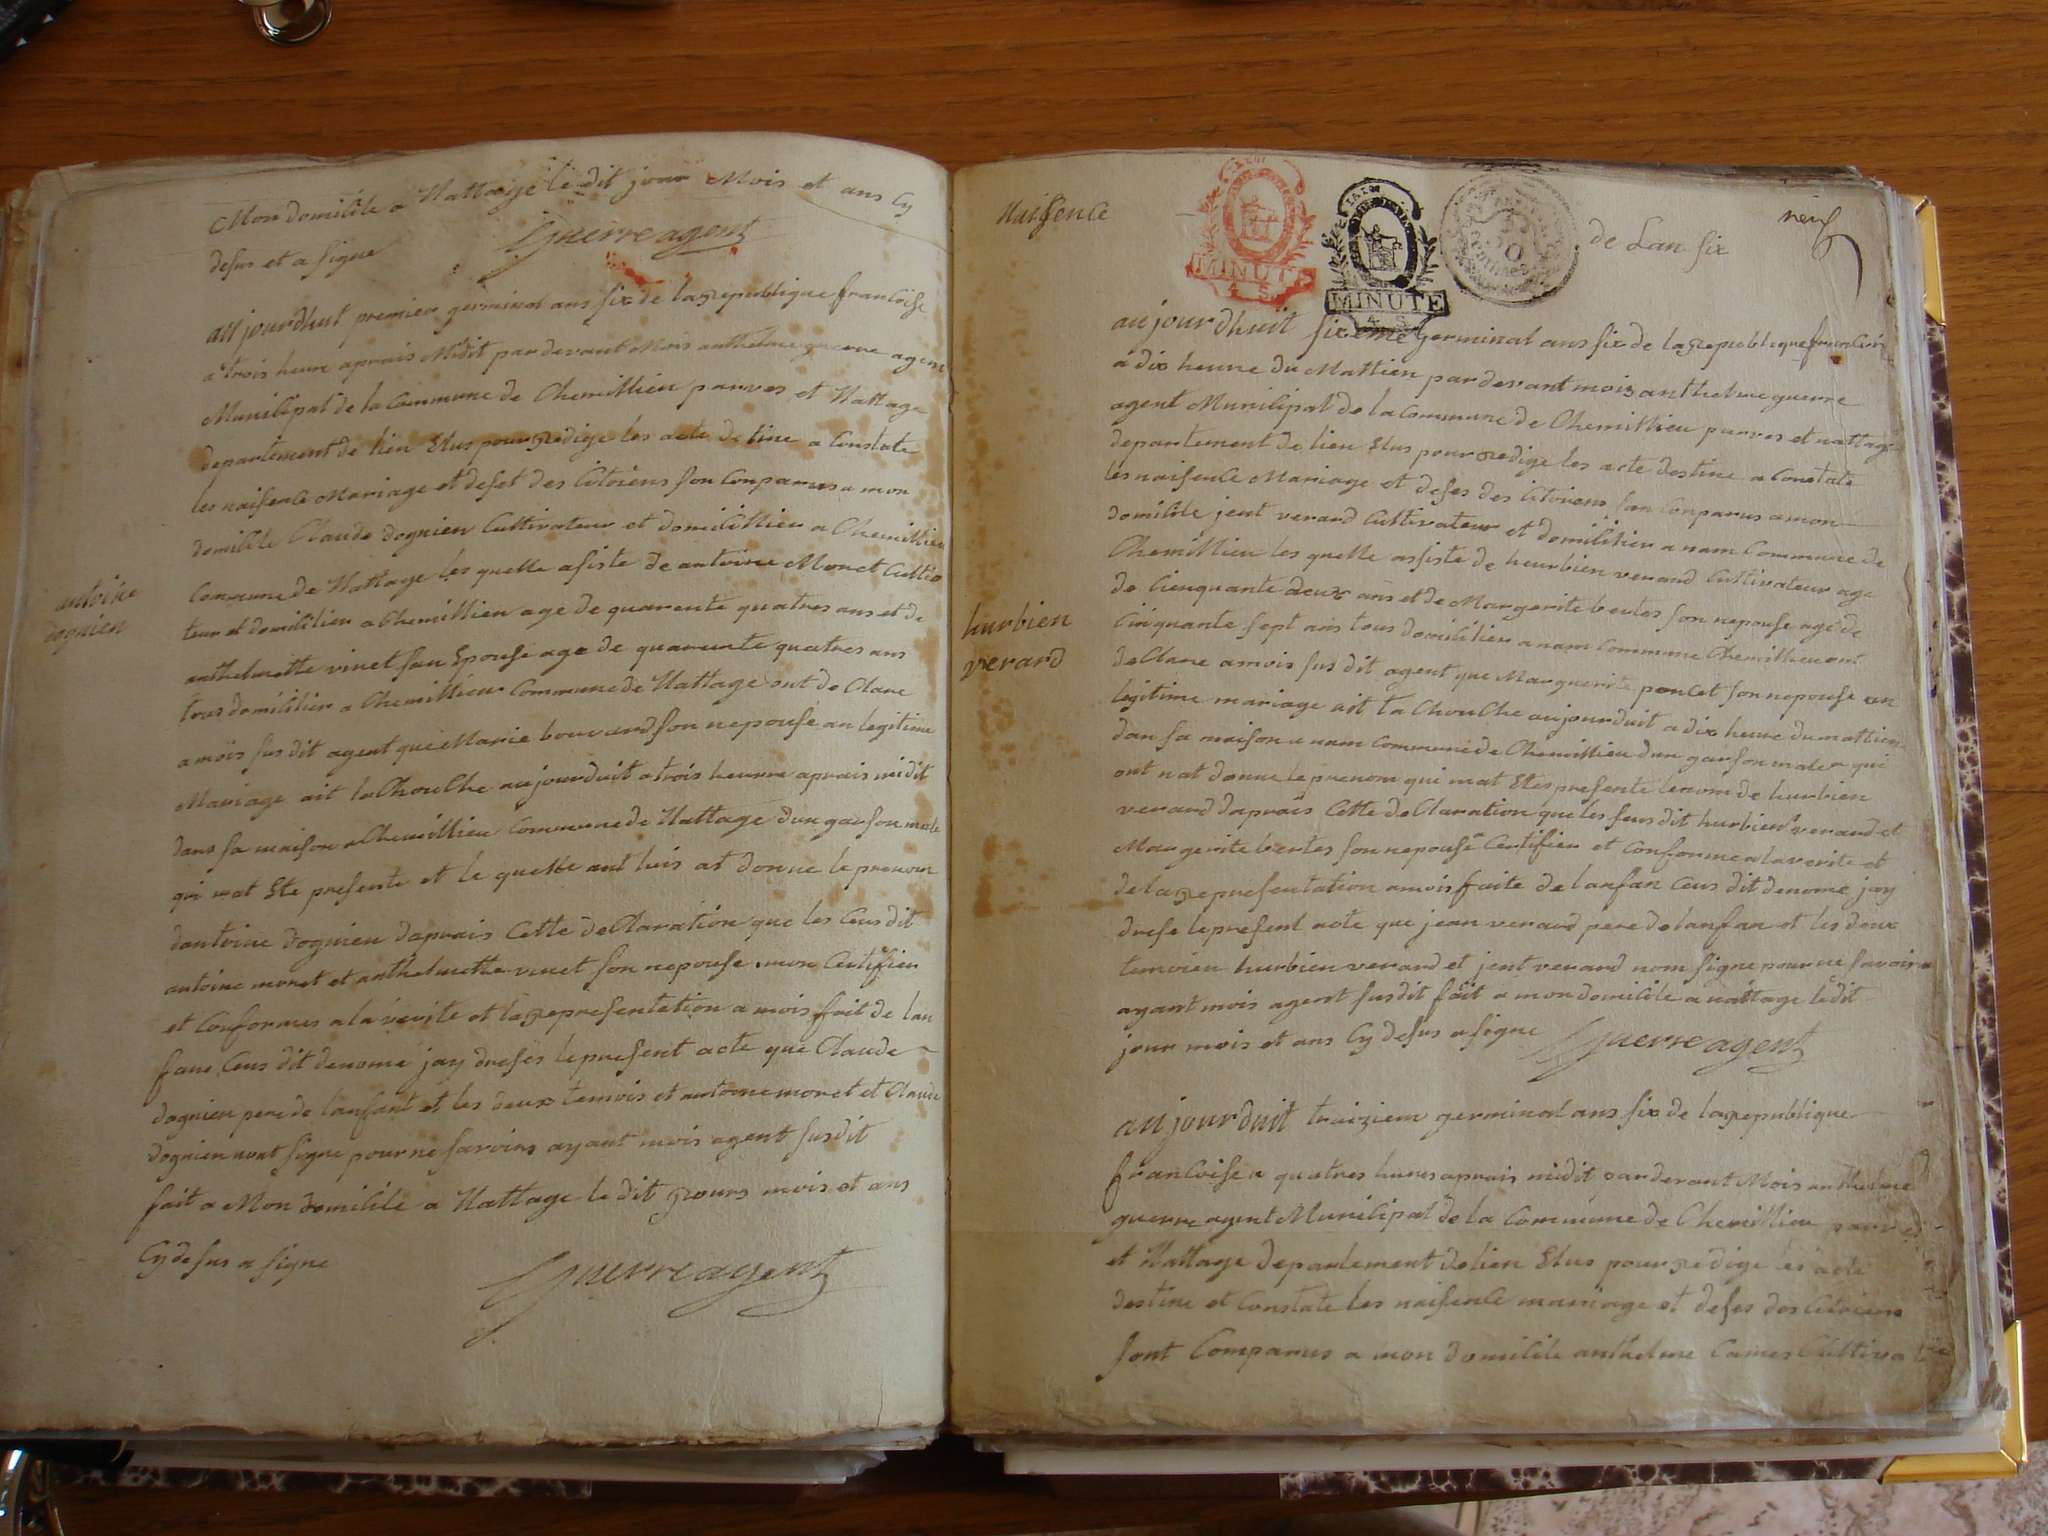 Mon domilile a Nattage le dit jour Mois et ans Cy
desus et a signe
Guerre agent
aujourdhut premier germinal ans six de la Republique francoise
a trois heure aprais Midit par devant Mois anthelme guerre agent
Munilipal de la Commune de Chemillieu parves et Nattage
departement de lien Elus pour Redige les acte destine a Constate
les naisence Mariage et deset des Citoiens son Conparus a mon
domilile Claude dognien Cultivateur et domilillier a Chemillieu
Commune de Nattage les quelle asiste de antoine Moret Cultiva
teur et domilitier a Chemillieu age de quarente quatres ans et de
anthelmette vinet son Epouse age de quarante quatres ans
tous domilitier a Chemillieu Commune de Nattage ont de Clare
a mois sus dit agent que Marie bouvard son nepouse an legitime
Mariage ait la Chouche aujourduit a trois heurre aprais midit
dans sa maison a Chemillieu Commune de Nattage dun garson male
qui mat Ete presente et le quelle ant luis at donne le prenom
dantoine dognien daprais Cette de Claration que les Cus dit
antoine moret et anthelmette vinet son nepouse mon Certifier
et Conformes a la verite et la Representation a mois fait de lan
fans Cus dit denome jay dreses le present acte que Claude
dognien pere de lanfant et les deux temois et antoine moret et Claude
dognien nont signe pour ne savoirs ayant mois agent susdit
fait a Mon domilile a Nattage le dit Jours mois et ans
Cy desus a signe
Guerre agent
antoine
dognien
Naissence
MINUTE
4 S
MINUTE
4 S
de Lan six
neuf
aujourdhuit sixeme germinal ans six de la Republique francois
a dix heure du Mattien par devant mois anthelme guerre
agent Munilipal de la Commune de Chemillieu parves et nattage
departement de lien Elus pour Redige les acte destine a Constate
les naisence Mariage et deses des Citoiens son Conparus a mon
domilile jent verard Cultivateur et domilitier a nam Commune de
Chemillieu les quelle assiste de hurbien verard Cultivateur age
de Cienquante deux ans et de Margerite bertes son nepouse age de
Cinquante sept ans tous domilitier a nam Commune Chemillieu ont
de Clare a mois sus dit agent que Marguerite poncet son nepouse en
legitime mariage ait la Chouche aujourduit a dix heure du mattien
dan sa maison a nam Commune de Chemillieu dun garson male qui
ont nat donne le prenom qui mat Etes presente le nom de hurbien
verard daprais Cette de Claration que les sus dit hurbien verard et
Margerite bertes son nepouse Certifier et Conforme a la verite et
de la Representation a mois faite de lanfan Cus dit denome jay
drese le present acte que jean verard pere de lanfan et les deux
temoien hurbien verard et jent verard nom signe pour ne savoirs
ayant mois agent susdit fait a mon domilile a nattage le dit
jour mois et ans Cy desus a signe
Guerre agent
hurbien
verard
aujourduit traiziem germinal ans six de la Republique
francoise a quatres hures aprais midit par devant Mois anthelme
guerre agent Munilipal de la Commune de Chemillieu parves
et Nattage departement de lien Elus pour Redige les acte
destine et Constate les naisence mariage et deses des Citoiens
sont Comparus a mon domilile anthelme Cultiva